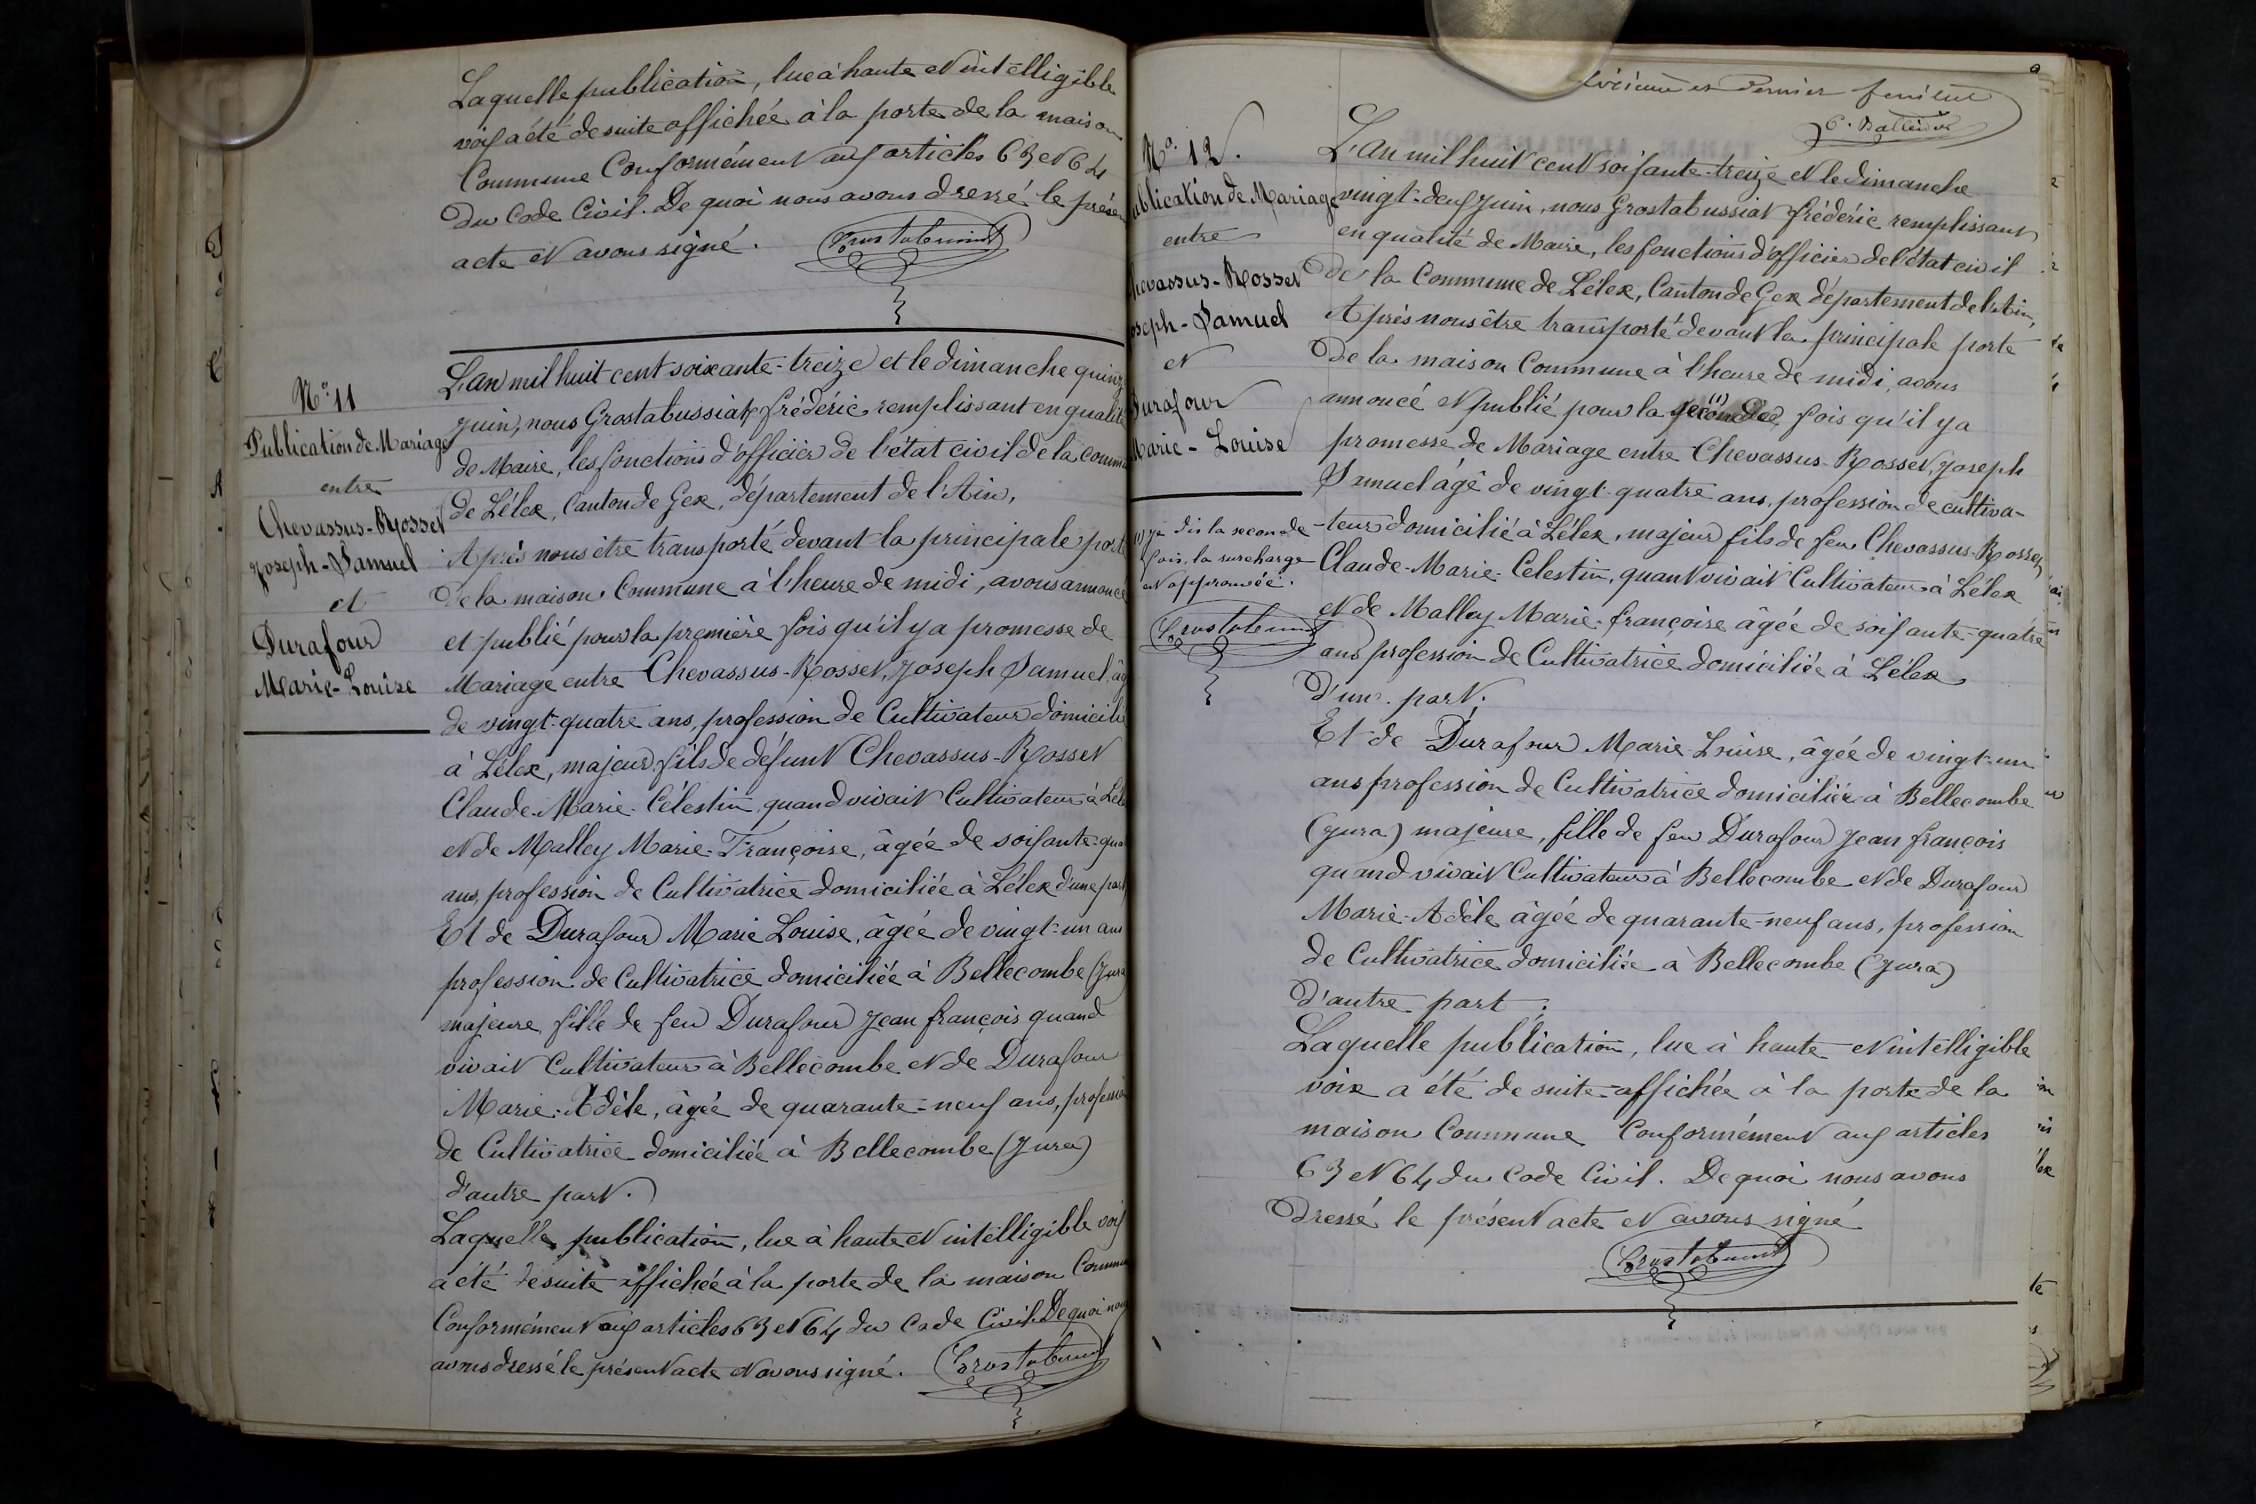 Laquelle publication, lue à haute et intelligible
voix a été de suite affichée à la porte de la maison
Commune Conformément aux articles 63 et 64
du Code Civil. De quoi nous avons dressé le présen
acte et avons signé.
Grostabussiat
N° 11
Publication de Mariage
entre
Chevassus-Rosset
Joseph-Samuel
et
Durafour
Marie-Louise
L'an mil huit cent soixante-treize et le dimanche quinze
juin, nous Grostabussiat frédéric remplissant en qualité
de Maire, les fonctions d'officier de l'état civil de la commu
de Lélex, Canton de Gex, département de l'Ain,
Après nous être transporté devant la principale porte
de la maison Commune à l'heure de midi, avons annoncé
et publié pour la première fois qu'il y a promesse de
Mariage entre Chevassus-Rosset, Joseph Samuel, âg
de vingt-quatre ans, profession de Cultivateur domicilié
à Lélex, majeur fils de défunt Chevassus-Rosset
Claude-Marie-Célestin, quand vivait Cultivateur à Léle
et de Malley Marie-Françoise, âgée de soixante-qua
ans, profession de Cultivatrice domiciliée à Lélex d'une part
Et de Durafour Marie Louise, âgée de vingt-un ans
profession de Cultivatrice domiciliée à Bellecombe (Jura
majeure fille de feu Durafour Jean françois quand
vivait Cultivateur à Bellecombe et de Durafour
Marie-Adèle, âgée de quarante-neuf ans, profession
de Cultivatrice domiciliée à Bellecombe (Jura)
d'autre part.
Laquelle publication, lue à haute et intelligible voix
a été de suite affichée à la porte de la maison Commun
Conformément aux articles 63 et 64 du Code Civil. De quoi nous
avons dressé le présent acte et avons signé.
Grostabussiat
et dernier feuillet
N° 12.
ublication de Mariage
entre
hevassus-Rosset
oseph-Samuel
et
Durafour
Marie-Louise
(1) Je dis la seconde
fois, la surcharge
est approuvée.
Grostabussiat
L'an mil huit cent soixante-treize et le dimanche
vingt-deux juin, nous Grostabussiat frédéric remplissant
en qualité de Maire, les fonctions d'officier de l'état civil
de la Commune de Lélex, Canton de Gex département de l'Ain,
Après nous être transporté devant la principale porte
de la maison Commune à l'heure de midi, avons
annoncé et publié pour la seconde (1) fois qu'il y a
promesse de Mariage entre Chevassus-Rosset, Joseph
Samuel âgé de vingt-quatre ans, profession de cultiva-
-teur domicilié à Lélex, majeur fils de feu Chevassus-Rosset,
Claude-Marie-Celestin, quant vivait Cultivateur à Lélex
et de Malley Marie-françoise âgée de soixante-quatre
ans profession de Cultivatrice domiciliée à Lélex
d'une part.
Et de Durafour Marie-Louise, âgée de vingt-un
ans profession de Cultivatrice domiciliée à Bellecombe
(Jura) majeure, fille de feu Durafour Jean françois
quand vivait Cultivateur à Bellecombe et de Durafour
Marie-Adèle âgée de quarante-neuf ans, profession
de Cultivatrice domiciliée à Bellecombe (Jura)
d'autre part.
Laquelle publication, lue à haute et intelligible
voix a été de suite affichée à la porte de la
maison Commune Conformément aux articles
63 et 64 du Code Civil. De quoi nous avons
dressé le présent acte et avons signé
Grostabussiat